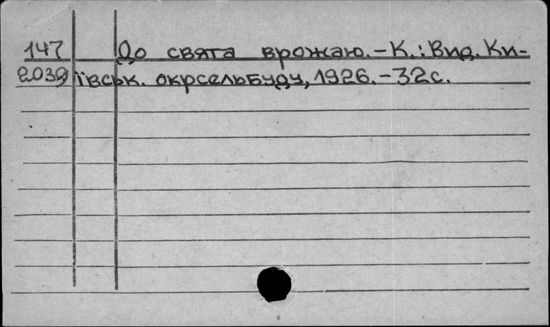 147 До свята врожаю.-К.: Вид. Ки-
2039 ївськ. окрсельбуду, 1926.-32с.